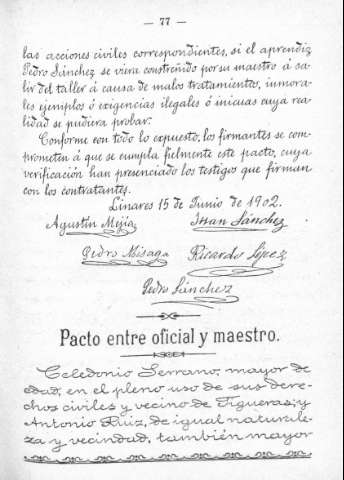 — 77 —
las acciones civiles correspondientes, si el aprendiz
Pedro Sánchez se viera constreñido por su maestro á sa-
lir del taller á causa de malos tratamientos, inmora-
les ejemplos ó exigencias ilegales ó inicuas cuya rea-
lidad se pudiera probar.
Conforme con todo lo expuesto, los firmantes se com-
prometen á que se cumpla fielmente este pacto, cuya
verificación han presenciado los testigos que firman
con los contratantes.
Linares 15 de Junio de 1902.
Agustín Mejía Juan Sánchez
Pedro Misaga Ricardo López
Pedro Sánchez
Pacto entre oficial y maestro.
Celedonio Serrano, mayor de
edad, en el pleno uso de sus dere-
chos civiles y vecino de Figueras; y
Antonio Ruiz, de igual naturale-
za y vecindad, también mayor